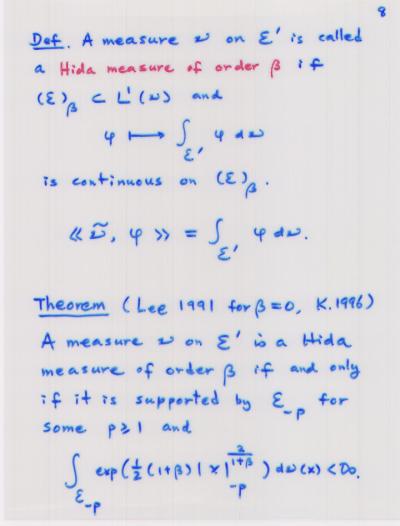 8
Def. A measure ν on ℰ' is called
a Hida measure of order β if
(ℰ)_β ⊂ L¹(ν) and
φ ⟼ ∫_{ℰ'} φ dν
is continuous on (ℰ)_β.
≪ ν̃, φ ≫ = ∫_{ℰ'} φ dν.
Theorem (Lee 1991 for β=0, K. 1996)
A measure ν on ℰ' is a Hida
measure of order β if and only
if it is supported by ℰ_{-p} for
some p ≥ 1 and
∫_{ℰ_{-p}} exp(½(1+β)|x|_{-p}^{2/(1+β)}) dν(x) < ∞.